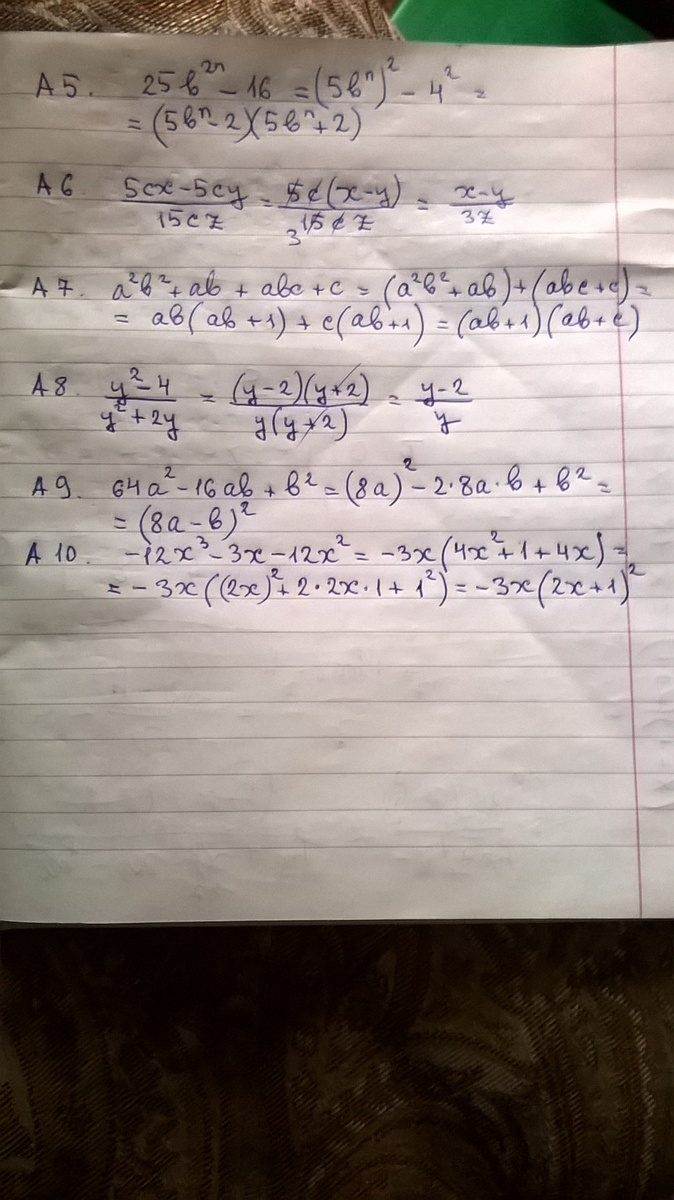 А5. 25в²ⁿ - 16 = (5вⁿ)² - 4² =
= (5вⁿ - 2)(5вⁿ + 2)
А6 (5cx - 5cy)/(15cz) = (5c(x-y))/(3 15cz) = (x-y)/(3z)
А7. a²в² + aв + aвc + c = (a²в² + aв) + (aвc + c) =
= aв(aв + 1) + c(aв + 1) = (aв + 1)(aв + c)
А8. (y² - 4)/(y² + 2y) = ((y-2)(y+2))/(y(y+2)) = (y-2)/y
А9. 64a² - 16aв + в² = (8a)² - 2·8a·в + в² =
= (8a - в)²
А10. -12x³ - 3x - 12x² = -3x(4x² + 1 + 4x) =
= -3x((2x)² + 2·2x·1 + 1²) = -3x(2x + 1)²